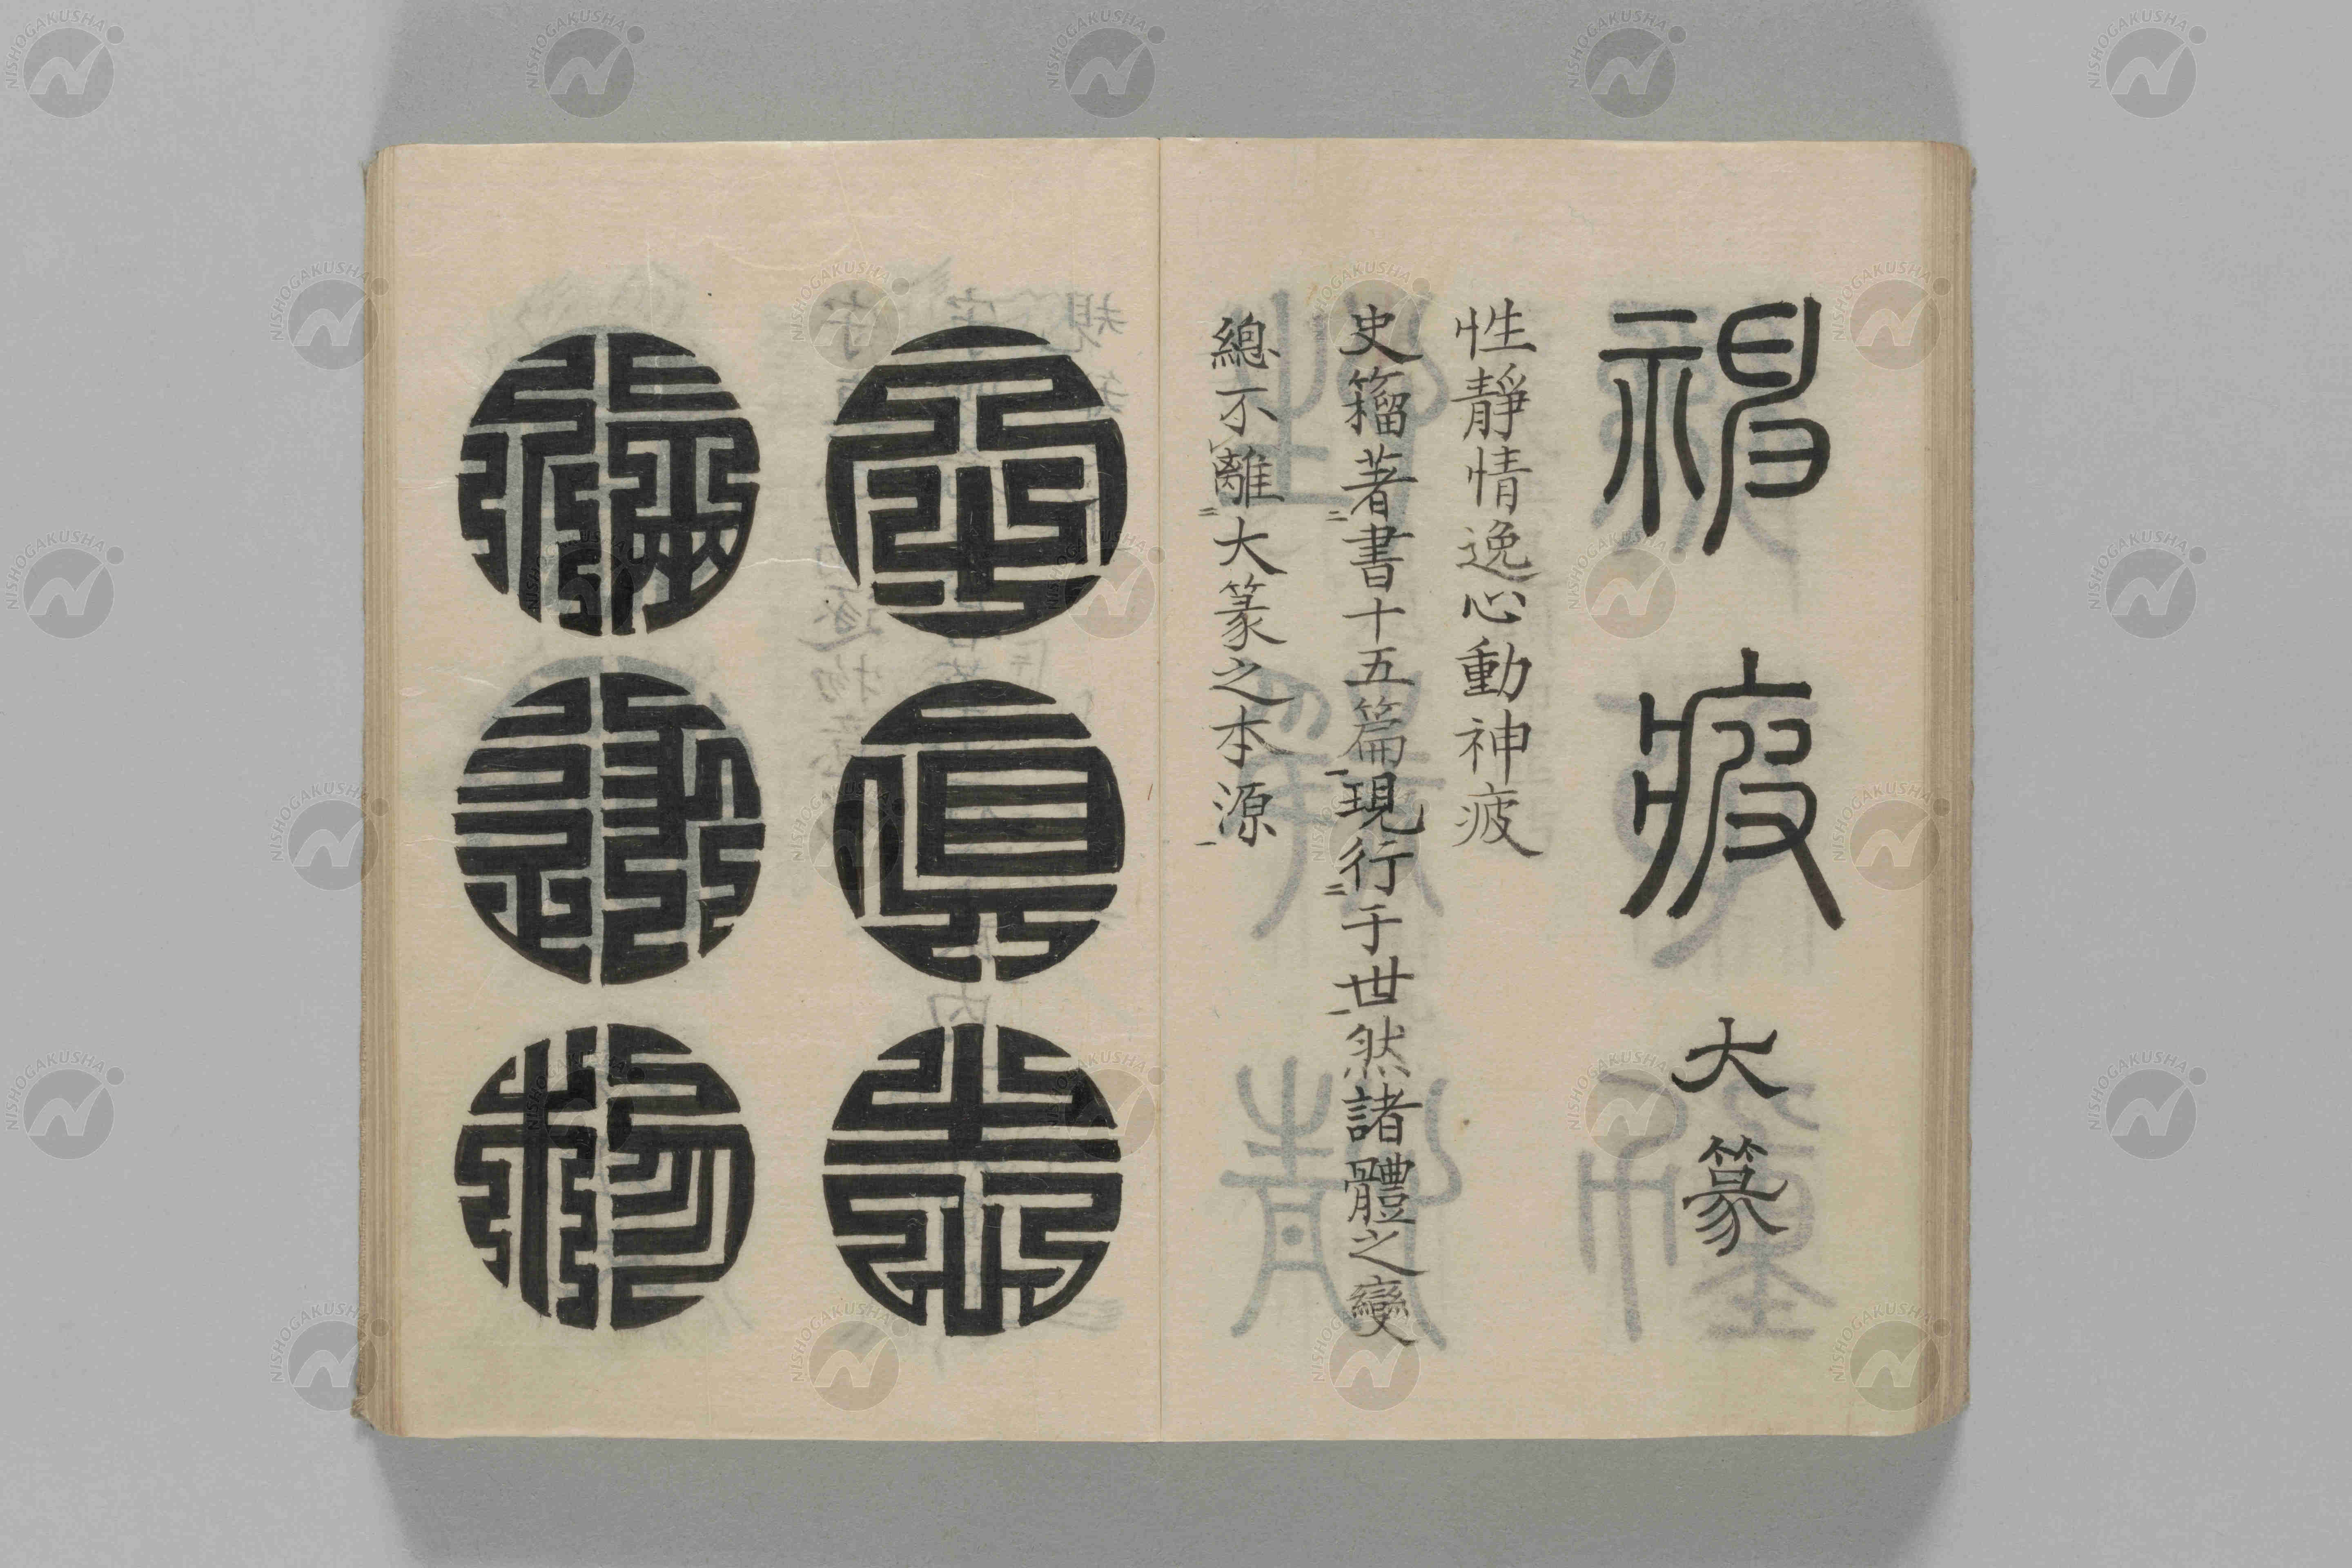 神疲 大篆
性靜情逸心動神疲
史籀著書十五篇現行于世然諸體之變
總不離大篆之本源
守眞志
滿逐物
NISHOGAKUSHA